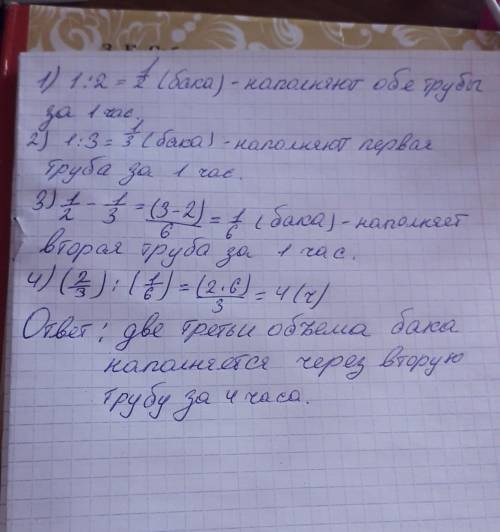 1) 1:2 = 1/2 (бака) - наполняют обе трубы
за 1 час.
2) 1:3 = 1/3 (бака) - наполняют первая
труба за 1 час.
3) 1/2 - 1/3 = (3-2)/6 = 1/6 (бака) - наполняет
вторая труба за 1 час.
4) (2/3) : (1/6) = (2·6)/3 = 4 (ч)
Ответ: две третьи объёма бака
наполняется через вторую
трубу за 4 часа.